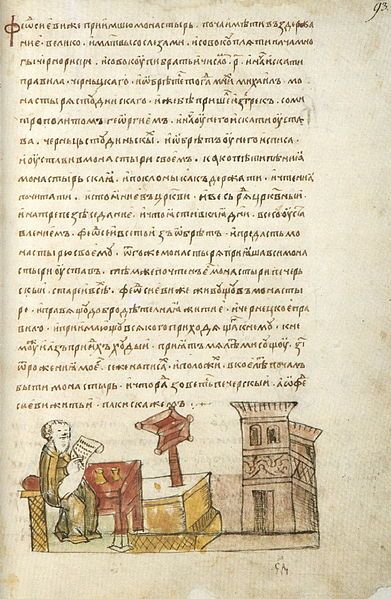 93.
Феѡсиеви же приимшю монастырь . поча имѣти въздержа
ние . велико . и мл҃твы со слезами . и совокоуплѧти нача мно
гы черноризци . и совокоупи братьи числом . р҃ . и нача искати
правила . чернцьскаго . и ѡбрѣтесѧ тогда мнихъ михаилъ . мо
настырѧ стоудискаго . иже бѣ пришел из грекъ . с ми
трополитом геѡргиемъ . и нача оу него искати оуста
ва . чернець стоудиискы . и ѡбрѣтъ оу него и списа .
и оустави в монастыри своемъ . како пѣти пѣниа
монастырьскаа . и поклоны какъ держати . и чтениа
почитати . и стоание въ церкви . и весь рѧд црковныи
и на трепезѣ седание . и что ѧсти в кыа дни . все со оуста
влением . феѡсеи все то изъѡбрѣтъ . и предасть мо
настырю своемоу . ѿ того же монастырѧ приѧша вси мона
стыри оуставъ . тѣмже почтенъ есть монастырь печерь
скыи . старѣи всѣх . феѡсиеви же живоущоу в монасты
ре . и правѧщоу добродѣтелноае житие . и чернецкое пра
вило . и приимающоу всѧкого приходѧща к немоу . к не
моу же и азъ приидох хоудыи . и приѧт мѧ лѣт ми соущоу . з҃і
ѿ рожениа моего . се же написах . и положих . в кое лѣто почалъ
быти монастырь . и что ради зоветьсѧ печерьскыи . а ѡ фео
сиеви житьи . паки скажем .